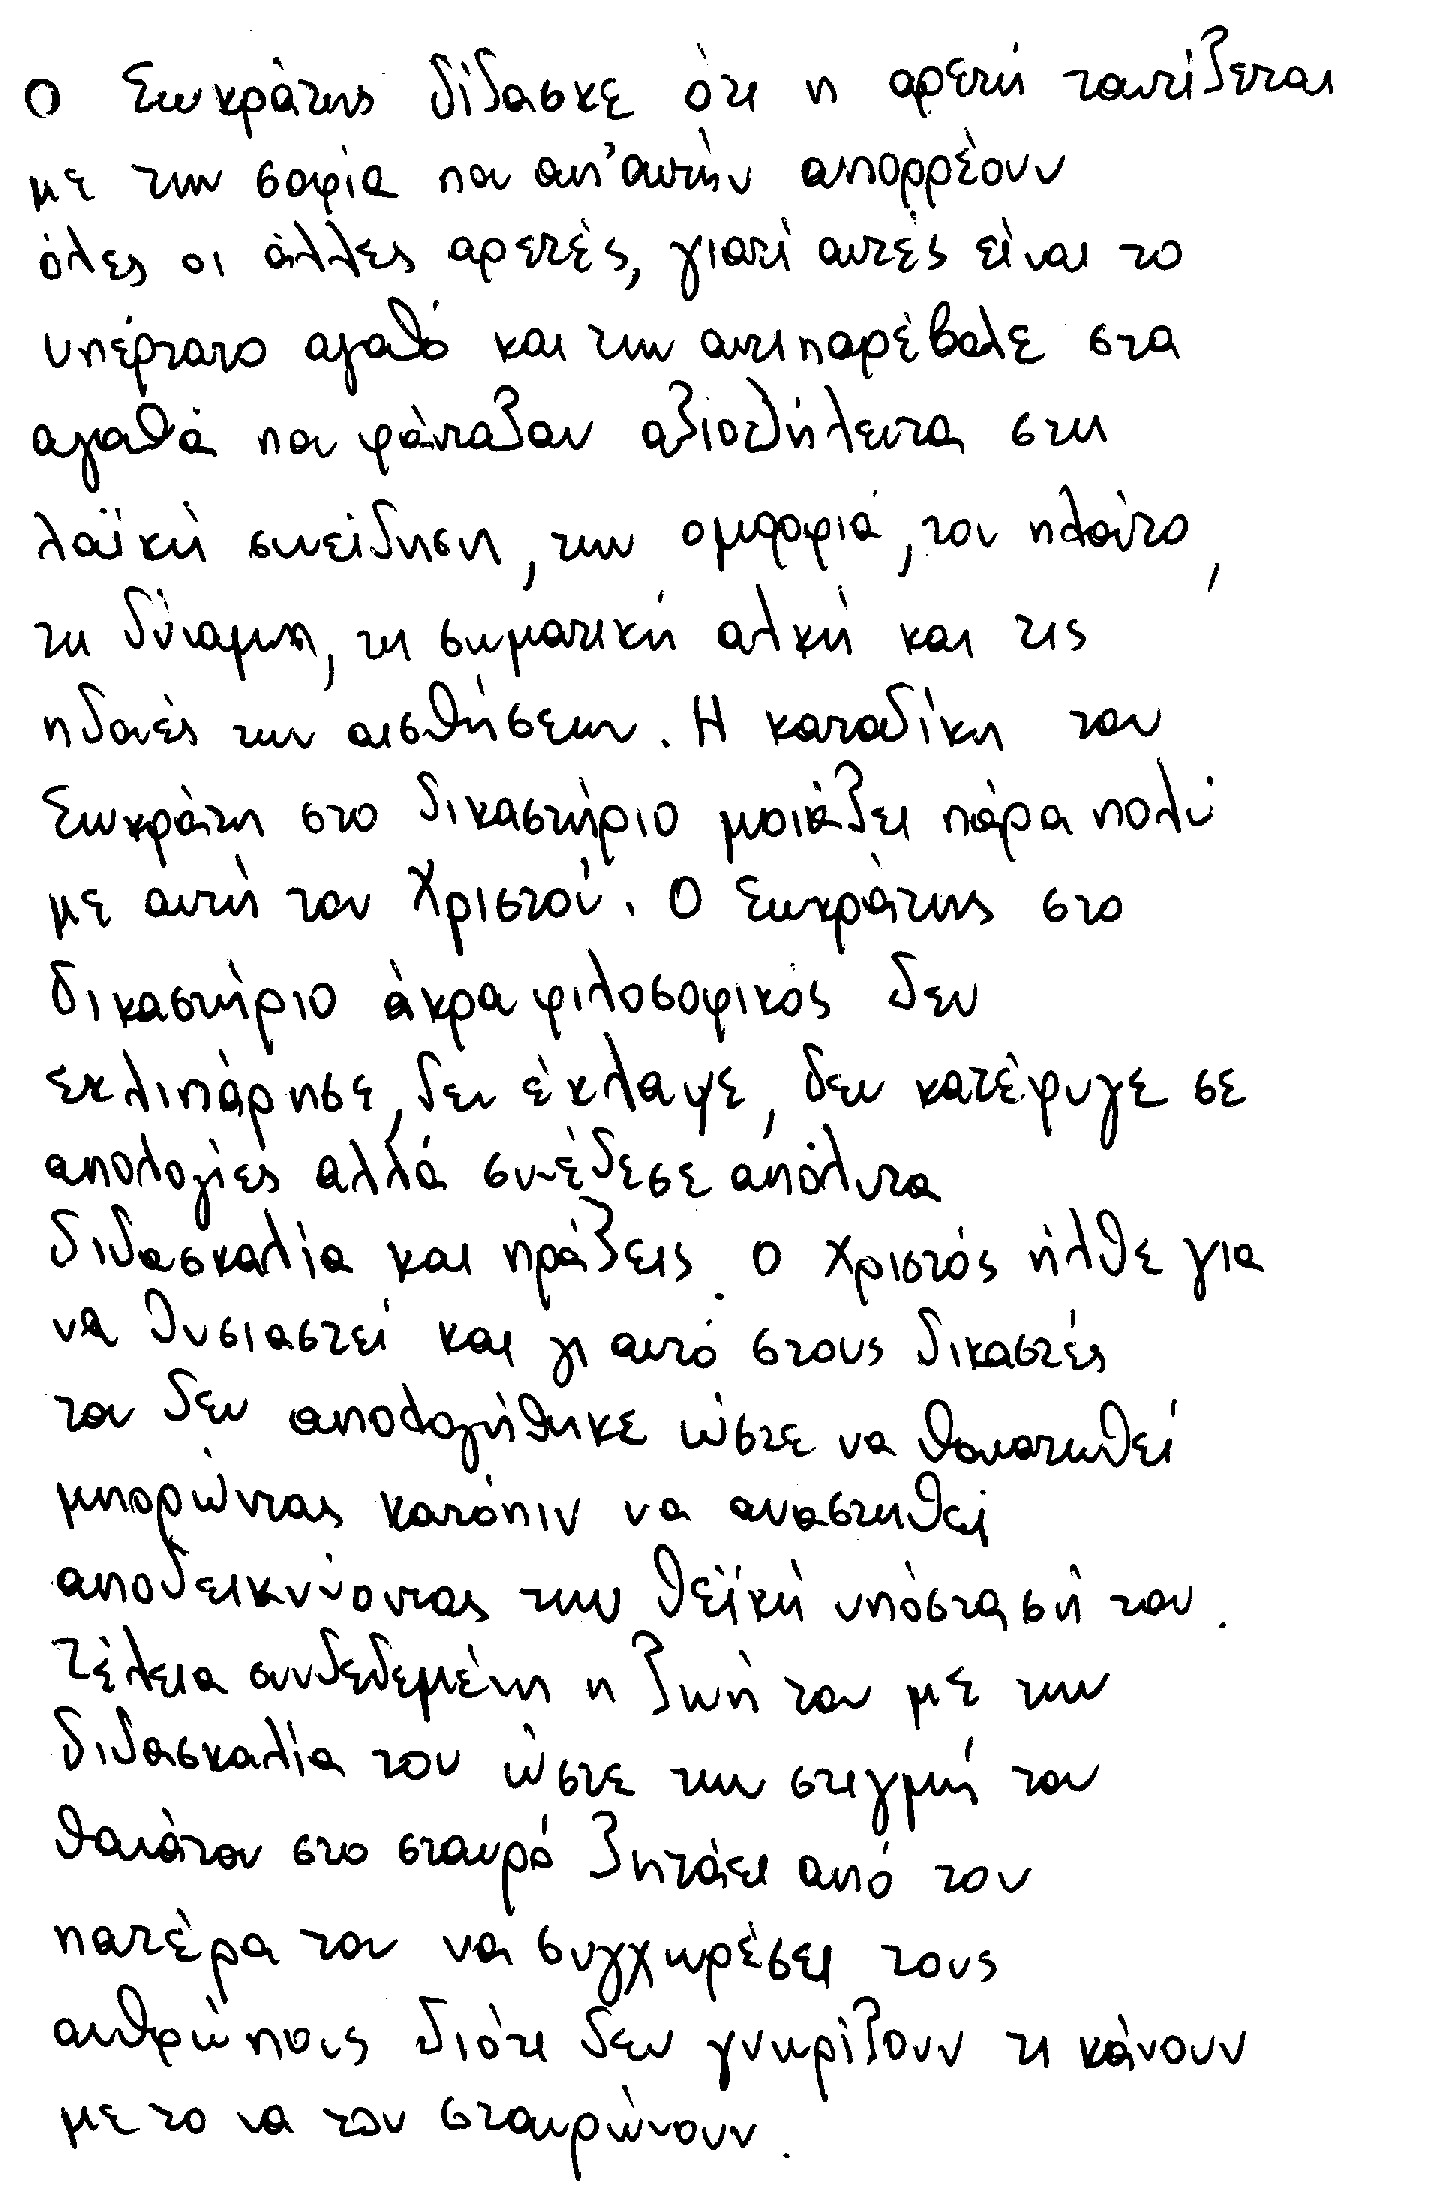 Ο Σωκράτης δίδασκε ότι η αρετή ταυτίζεται
με την σοφία που απ'αυτήν απορρέουν
όλες οι άλλες αρετές, γιατί αυτές είναι το
υπέρτατο αγαθό και την αντιπαρέβαλε στα
αγαθά που φάνταζαν αξιοζήλευτα στη
λαϊκή συνείδηση, την ομορφιά, τον πλούτο,
τη δύναμη, τη σωματική αλκή και τις
ηδονές των αισθήσεων. Η καταδίκη του
Σωκράτη στο δικαστήριο μοιάζει πάρα πολύ
με αυτή του Χριστού. Ο Σωκράτης στο
δικαστήριο άκρα φιλοσοφικός δεν
εκλιπάρησε, δεν έκλαψε, δεν κατέφυγε σε
απολογίες αλλά συνέδεσε απόλυτα
διδασκαλία και πράξεις. Ο Χριστός ήλθε για
να θυσιαστεί και γι αυτό στους δικαστές
του δεν απολογήθηκε ώστε να θανατωθεί
μπορώντας κατόπιν να αναστηθεί
αποδεικνύοντας την θεϊκή υπόστασή του.
Τέλεια συνδεδεμένη η ζωή του με την
διδασκαλία του ώστε την στιγμή του
θανάτου στο σταυρό ζητάει από τον
πατέρα του να συγχωρέσει τους
ανθρώπους διότι δεν γνωρίζουν τι κάνουν
με το να τον σταυρώνουν.